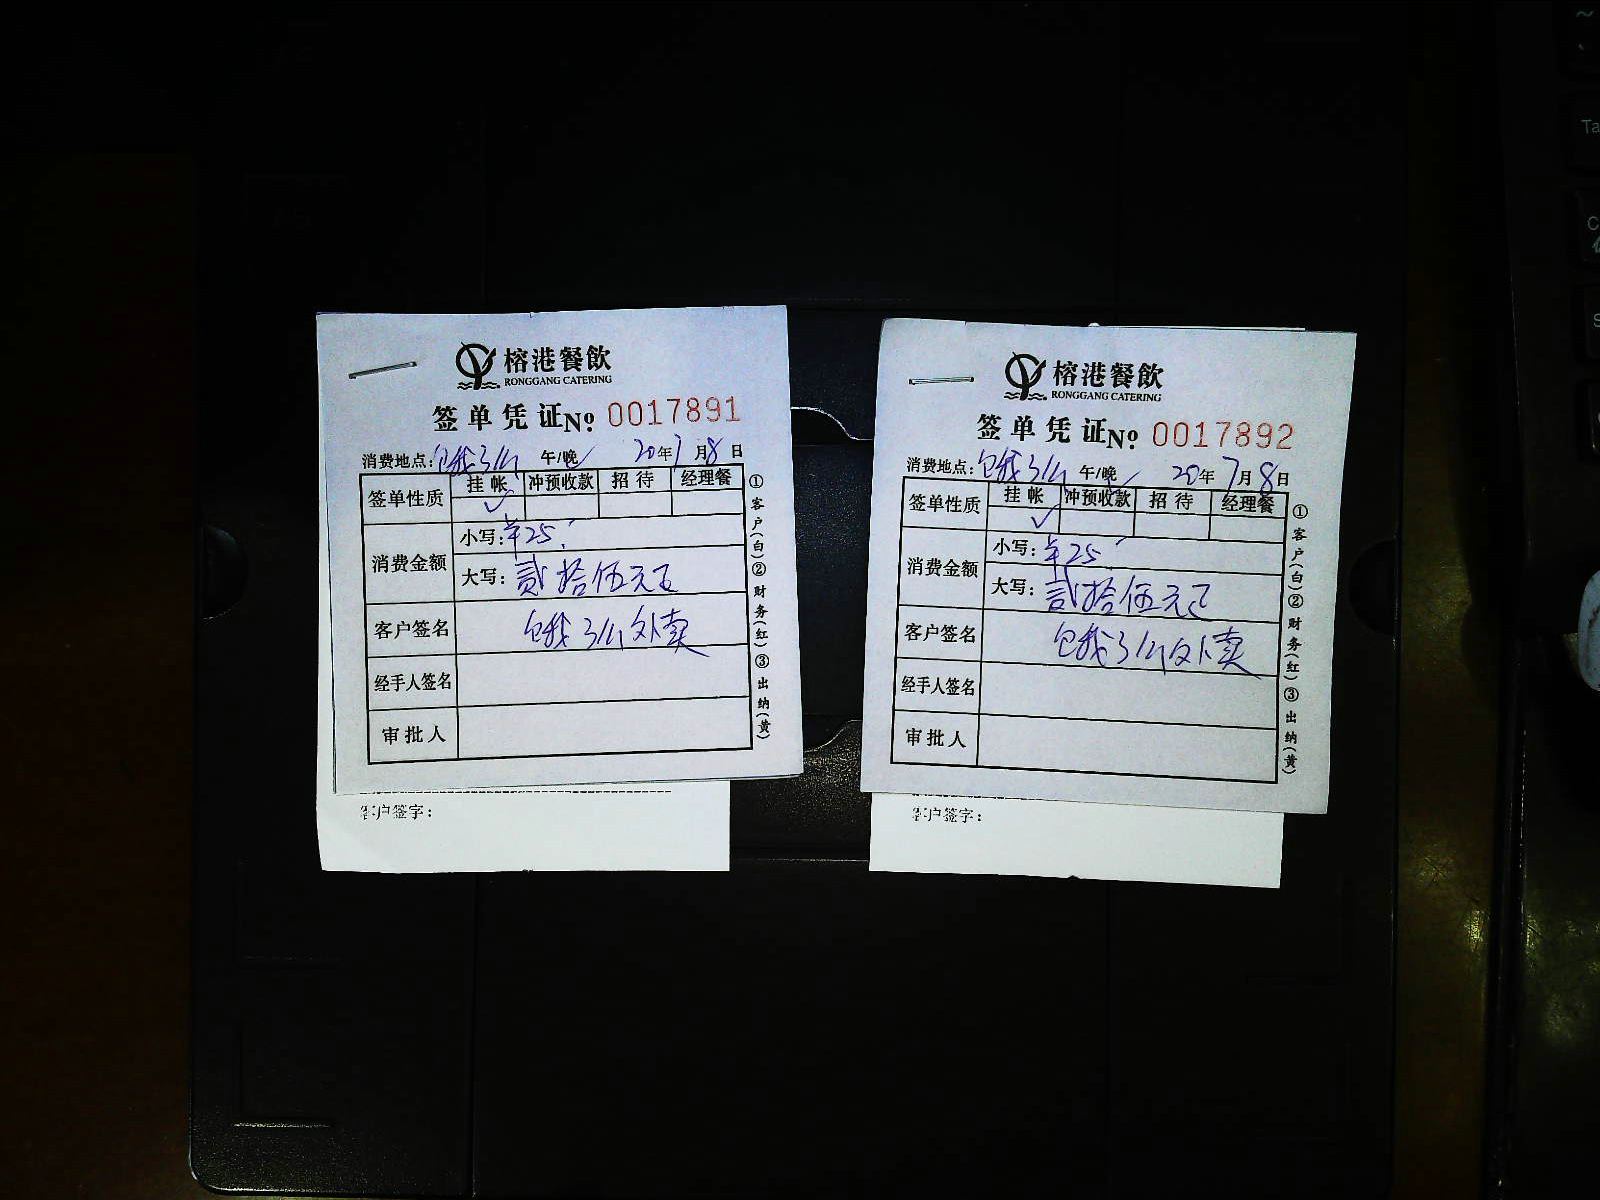 榕港餐飲
RONGGANG CATERING
签单凭证№ 0017891
消费地点：饿了么 午/晚✓ 20年7月8日
签单性质 挂帐 冲预收款 招待 经理餐
✓
消费金额 小写：¥25.
大写：贰拾伍元正
客户签名 饿了么外卖
经手人签名
审批人
①客户(白)②财务(红)③出纳(黄)
客户签字：
榕港餐飲
RONGGANG CATERING
签单凭证№ 0017892
消费地点：饿了么 午/晚✓ 20年7月8日
签单性质 挂帐 冲预收款 招待 经理餐
✓
消费金额 小写：¥25
大写：贰拾伍元正
客户签名 饿了么外卖
经手人签名
审批人
①客户(白)②财务(红)③出纳(黄)
客户签字：